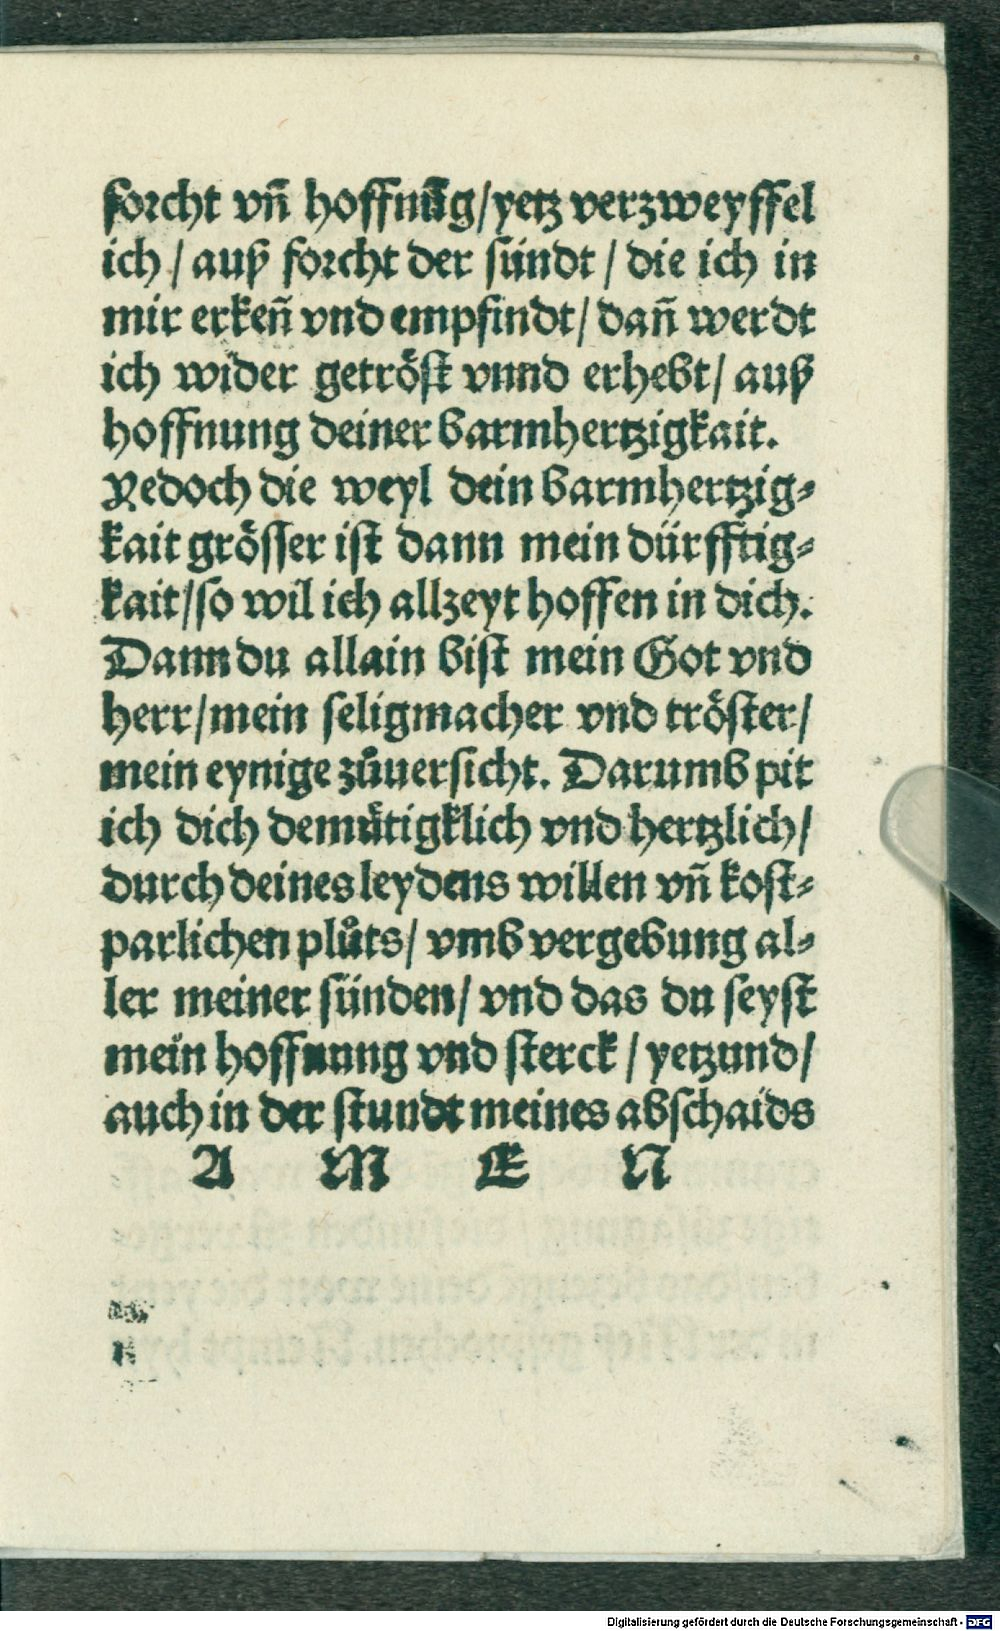 forcht vn̄ hoffnūg/yetz verzweyffel
ich / auß forcht der sündt / die ich in
mir erken̄ vnd empfindt/ dan̄ werdt
ich wider getröst vnnd erhebt/ auß
hoffnung deiner barmhertzigkait.
Yedoch die weyl dein barmhertzig⸗
kait grösser ist dann mein dürfftig⸗
kait/so wil ich allzeyt hoffen in dich.
Dann du allain bist mein Got vnd
herr/mein seligmacher vnd tröster/
mein eynige zůuersicht. Darumb pit
ich dich demütigklich vnd hertzlich/
durch deines leydens willen vn̄ kost⸗
parlichen plůts/ vmb vergebung al⸗
ler meiner sünden/ vnd das du seyst
mein hoffnung vnd sterck / yetzund/
auch in der stundt meines abschaids
A M E N
Digitalisierung gefördert durch die Deutsche Forschungsgemeinschaft - DFG